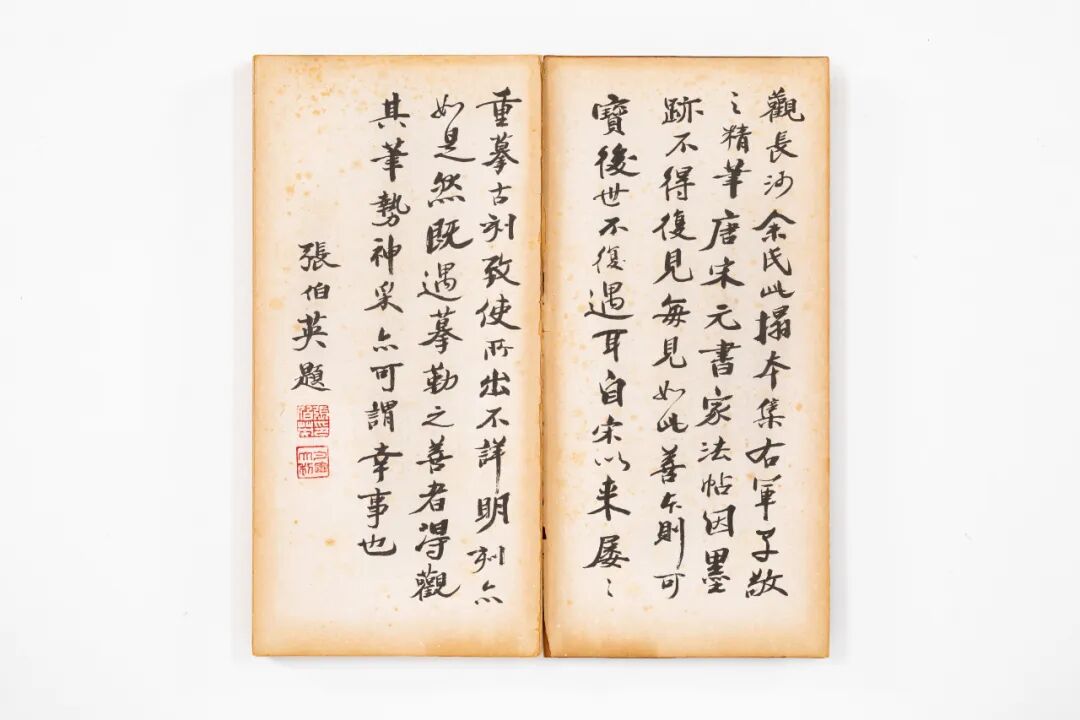 觀長沙余氏此搨本集右軍子敬
之精華唐宋元書家法帖因墨
跡不得復見每見如此善本則可
寶後世不復遇耳自宋以来屡々
重摹古刻致使所出不詳明刻亦
如是然既遇摹勒之善者得觀
其筆勢神采亦可謂幸事也
張伯英題